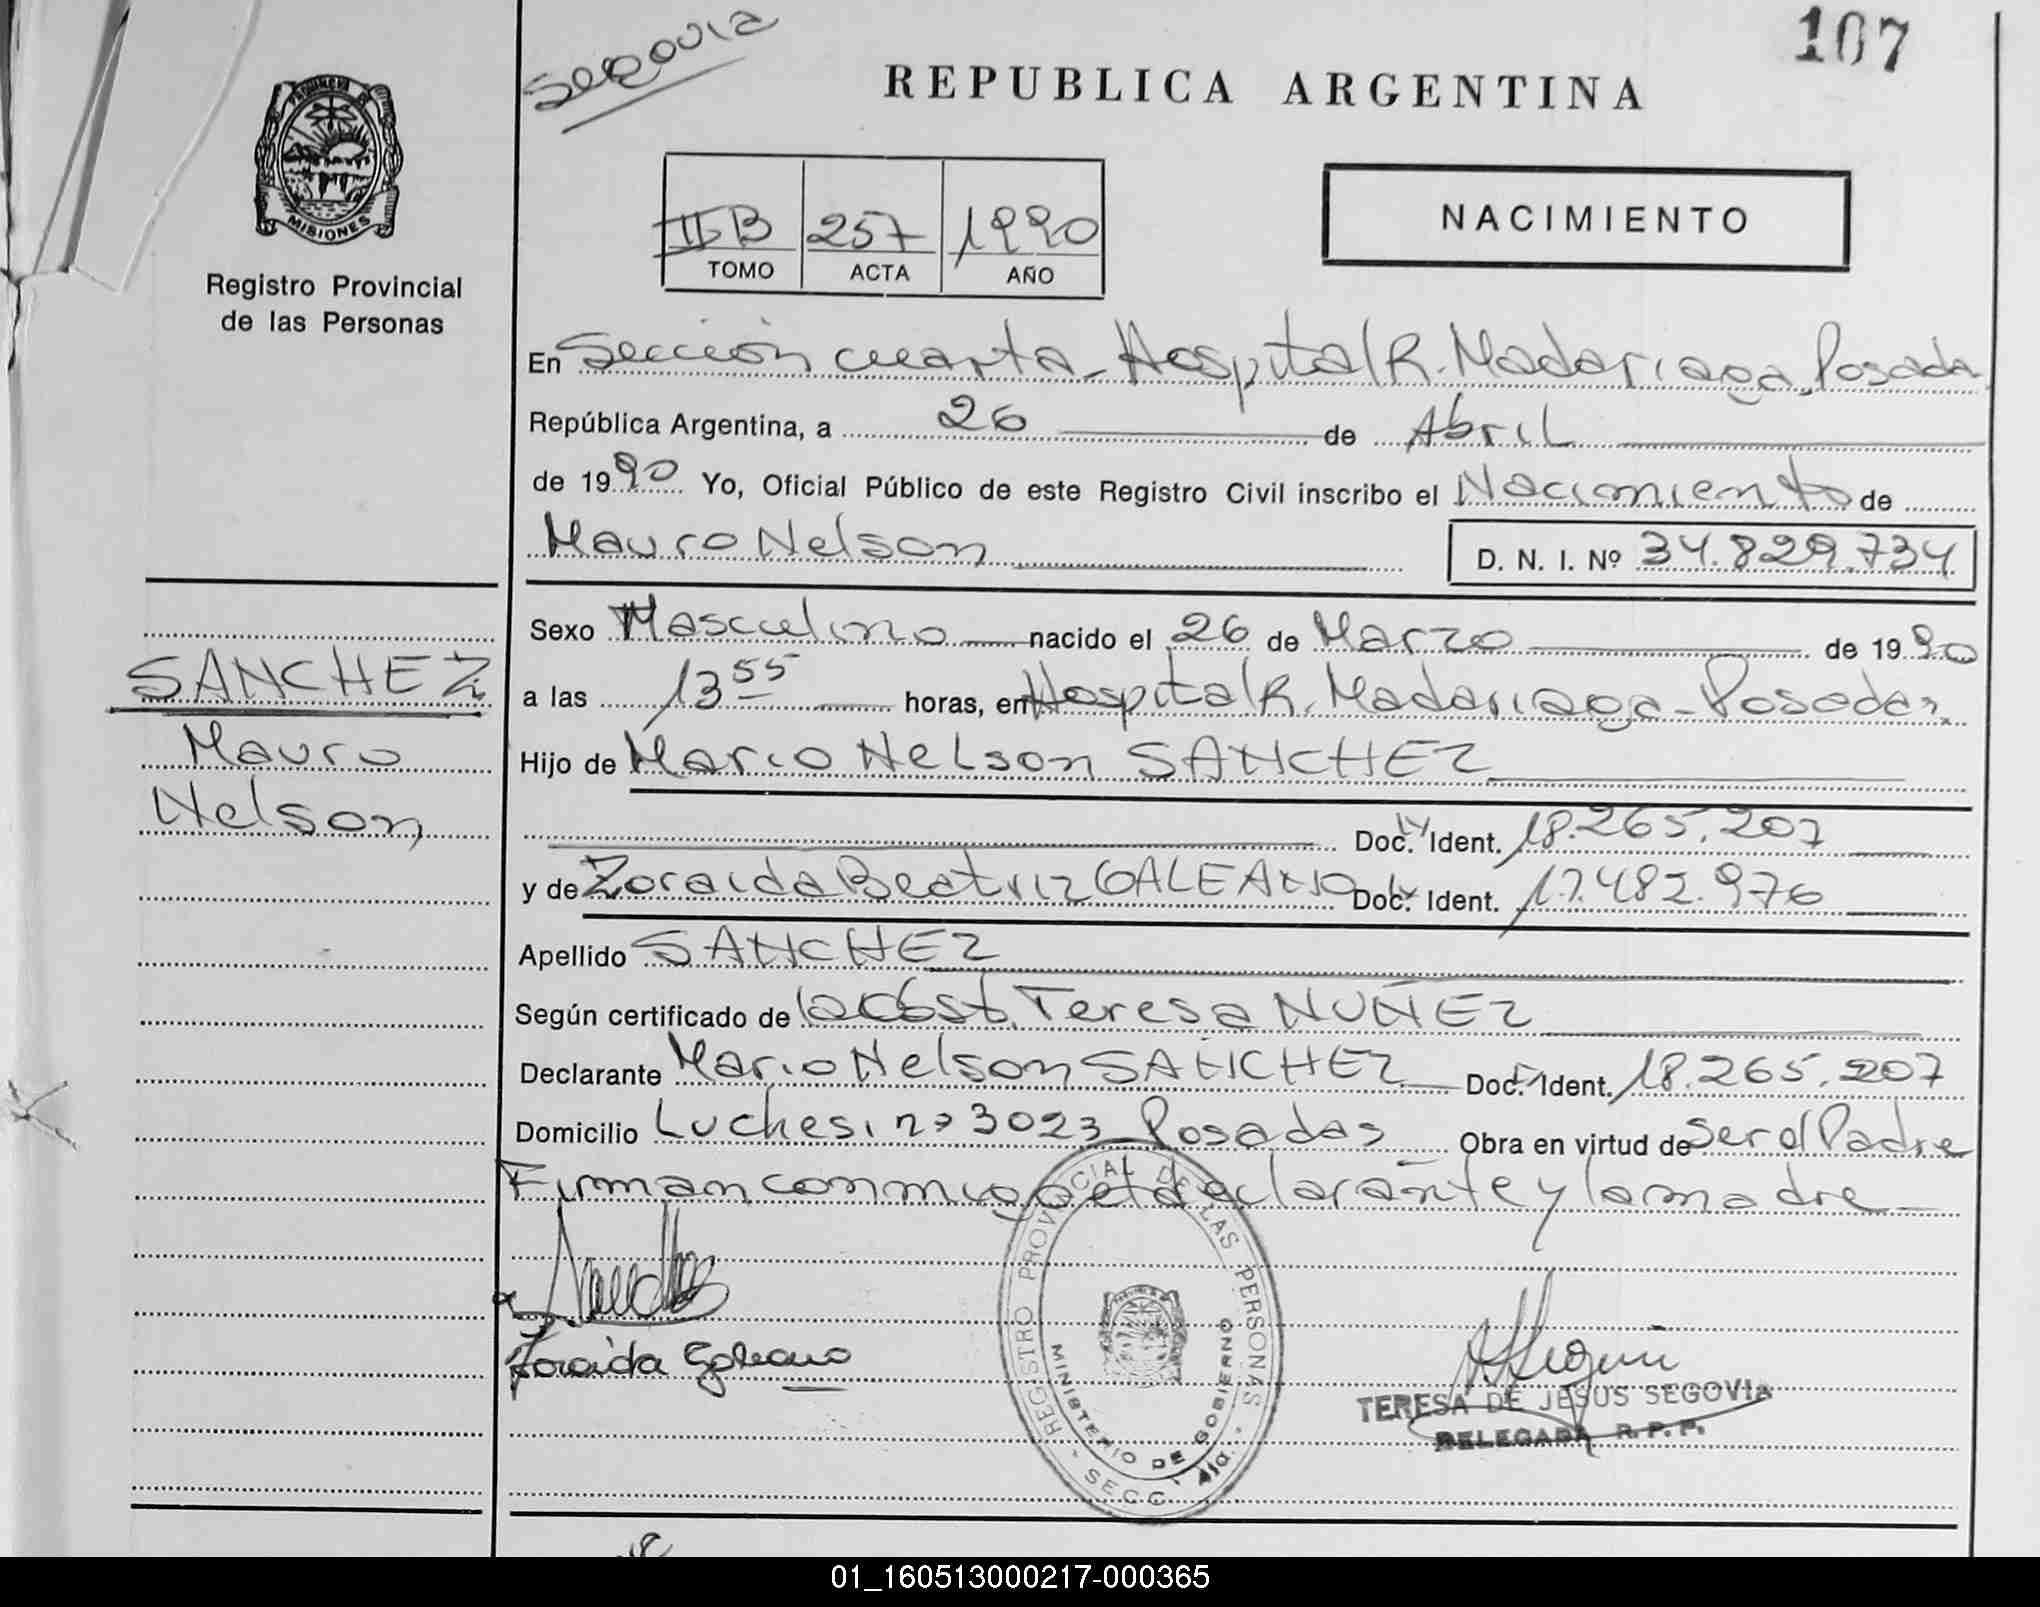 107
Segovia
REPUBLICA ARGENTINA
PROVINCIA DE
MISIONES
Registro Provincial
de las Personas
II B 257 1990
TOMO ACTA AÑO
NACIMIENTO
En Sección cuarta - Hospital R. Madariaga, Posadas
República Argentina, a 26 de Abril
de 1990 Yo, Oficial Público de este Registro Civil inscribo el Nacimiento de
Mauro Nelson D. N. I. Nº 34.829.734
Sexo Masculino nacido el 26 de Marzo de 1990
a las 13 55 horas, en Hospital R. Madariaga - Posadas
Hijo de Mario Nelson SANCHEZ
Doc. Ident. 18.265.207
y de Zoraida Beatriz GALEANO Doc. Ident. 17.482.976
Apellido SANCHEZ
Según certificado de la Obst. Teresa NUÑEZ
Declarante Mario Nelson SANCHEZ Doc. Ident. 18.265.207
Domicilio Luchesi nº 3023 Posadas Obra en virtud de Ser el Padre
Firman conmigo el declarante y la madre
SANCHEZ
Mauro
Nelson
Zoraida Galeano
REGISTRO PROVINCIAL DE LAS PERSONAS
MINISTERIO DE GOBIERNO
SECC. 4ta.
TERESA DE JESUS SEGOVIA
DELEGADA R. P. P.
01_160513000217-000365